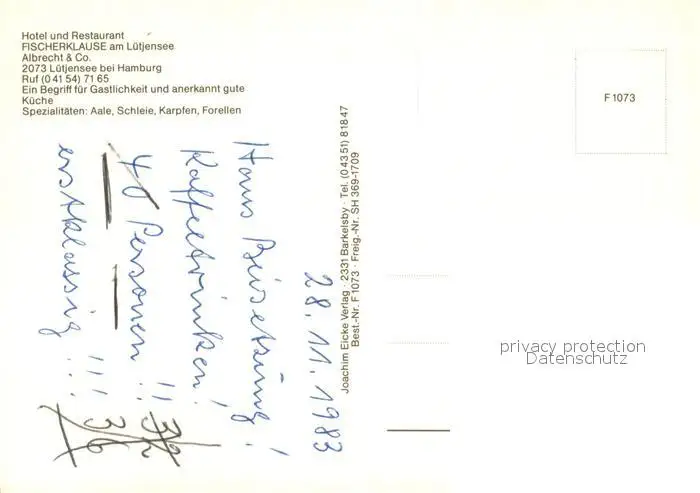 Hotel und Restaurant
FISCHERKLAUSE am Lütjensee
Albrecht & Co.
2073 Lütjensee bei Hamburg
Ruf (0 41 54) 71 65
Ein Begriff für Gastlichkeit und anerkannt gute
Küche
Spezialitäten: Aale, Schleie, Karpfen, Forellen
F 1073
Joachim Eicke Verlag · 2331 Barkelsby · Tel. (0 43 51) 8 18 47
Best.-Nr. F 1073 · Freig.-Nr. SH 369-1709
28.11.1983
Hans Beisetzung!
Kaffeetrinken!
40 Personen!!
erstklassig!!!
32
36
privacy protection
Datenschutz